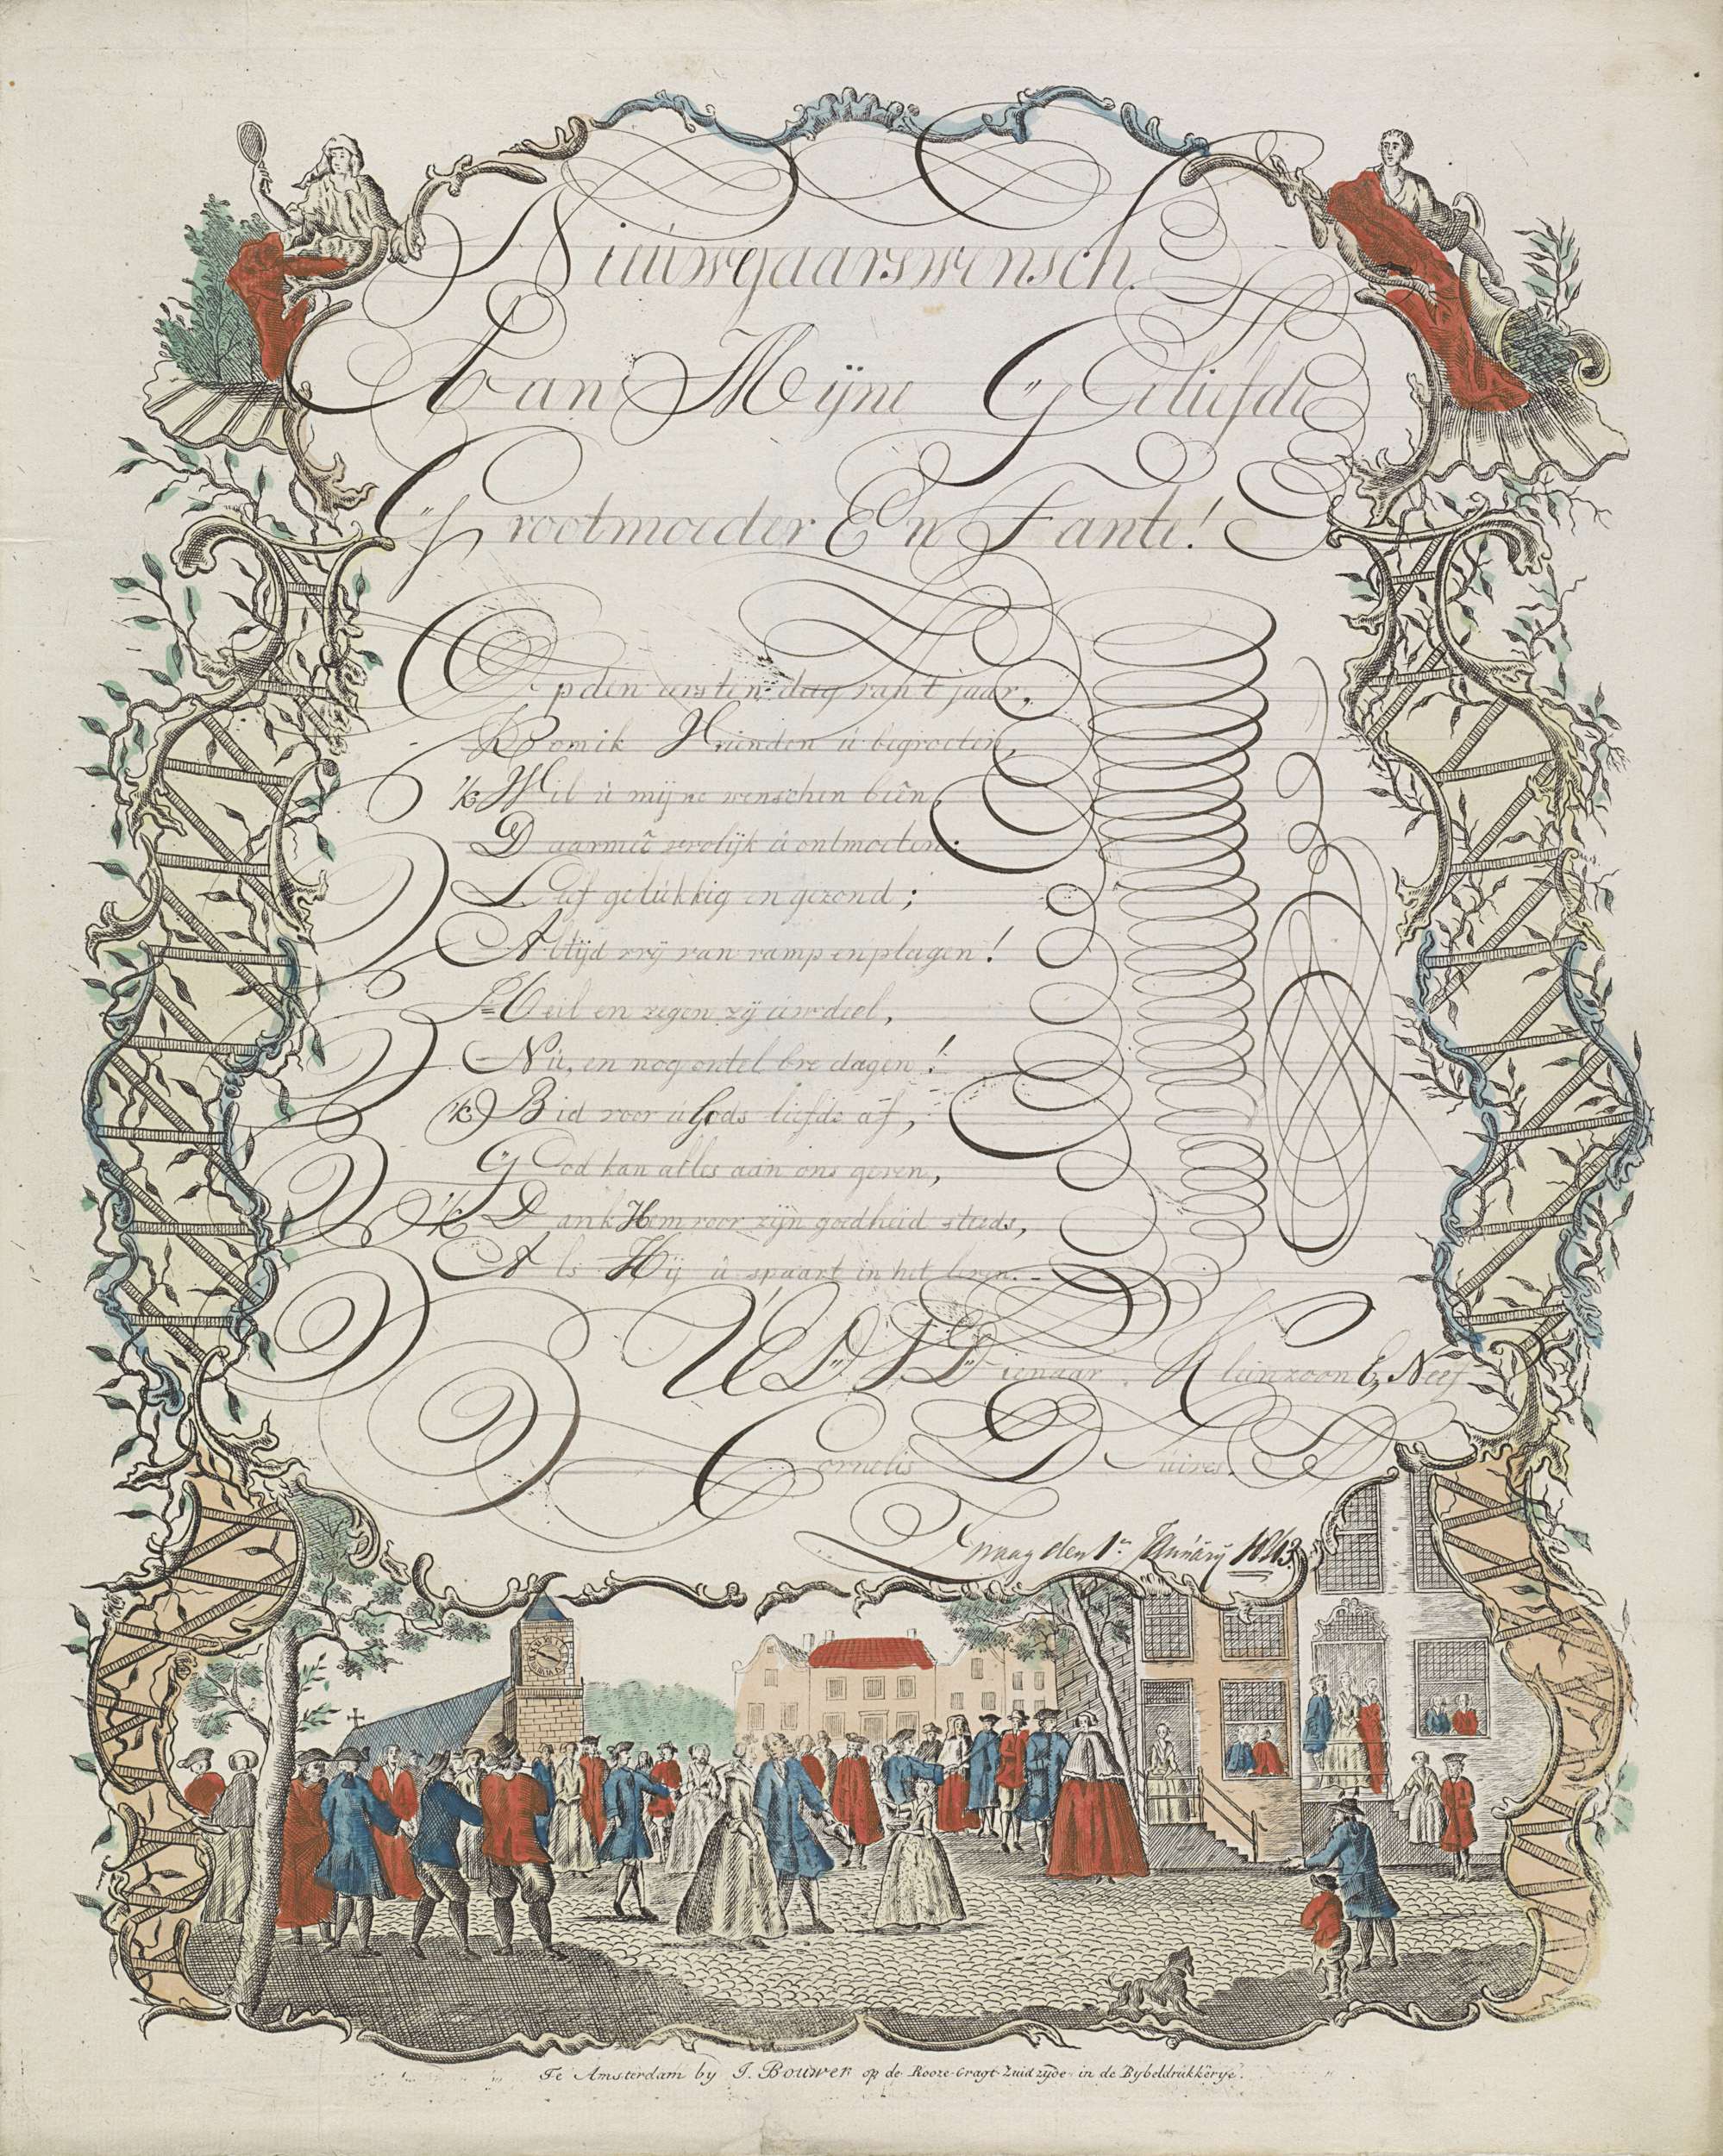 Nieuwejaarswensch.
Aan Mijne Geliefde
Grootmoeder En Tante!
Op den eersten dag van t jaar,
Kom ik Vrienden û begroeten,
'k Wil û mijne wenschen biên,
Daarmeê vrolijk û ontmoeten:
Leef gelûkkig en gezond;
Altijd vrij van ramp en plagen!
Heil en zegen zij ûw deel,
Nû, en nog ontelbre dagen!
'k Bid voor û Gods liefde af,
God kan alles aan ons geven,
'k Dank Hem voor zijn goedheid steeds,
Als Hij û spaart in het leven.
UEDWDienaar Kleinzoon & Neef
Cornelis
den 1n Janûarij 1843
Te Amsterdam by J. Bouwer op de Rooze-Gragt Zuid zyde in de Bybeldrukkerye.